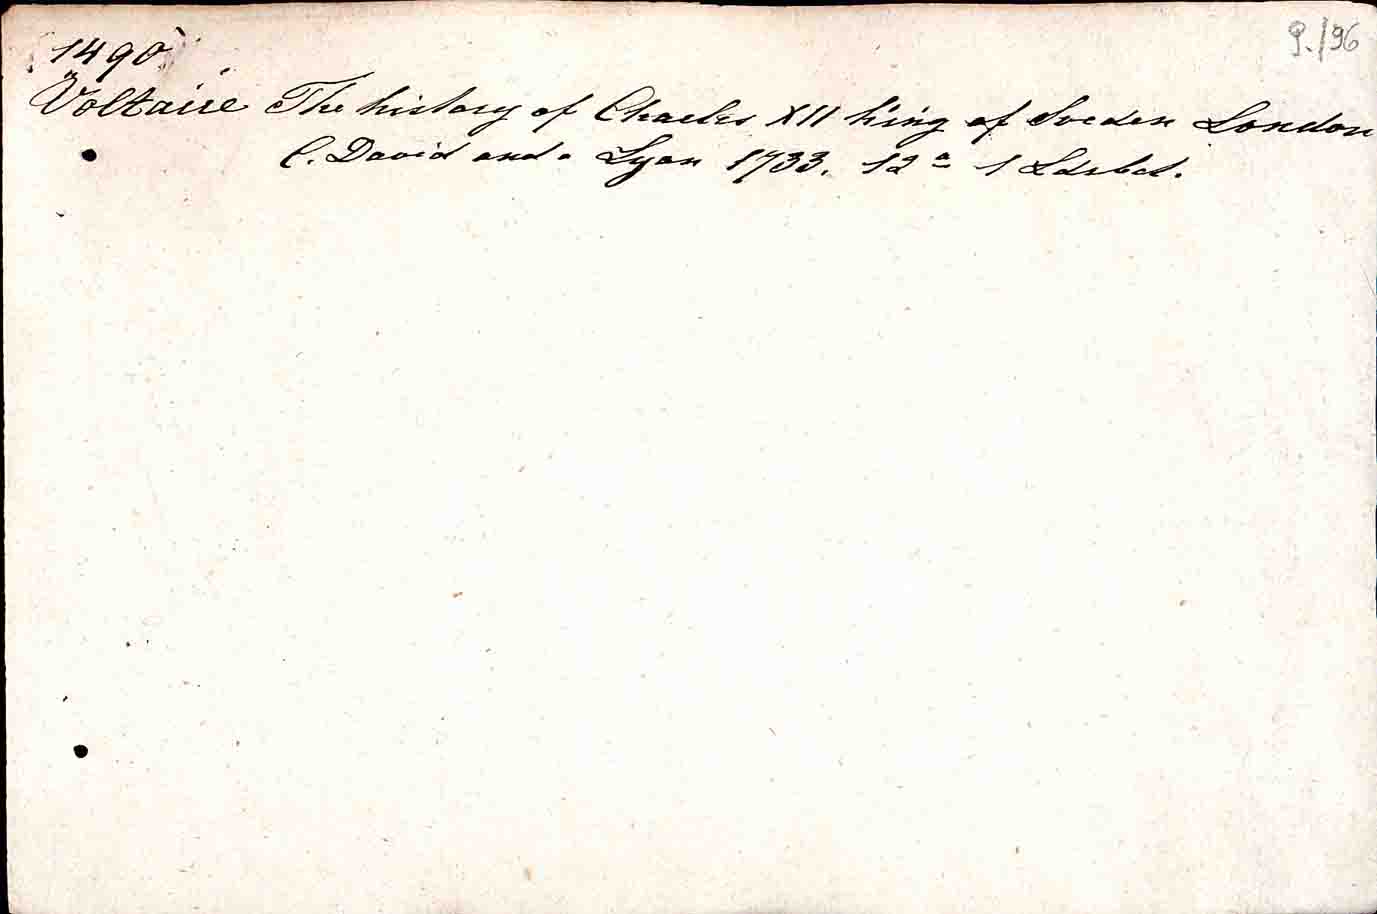 9./96
1490
Voltaire The history of Charles XII king of Sveden London
C. David and. Lyon 1733. 12º 1 Ldrbd.